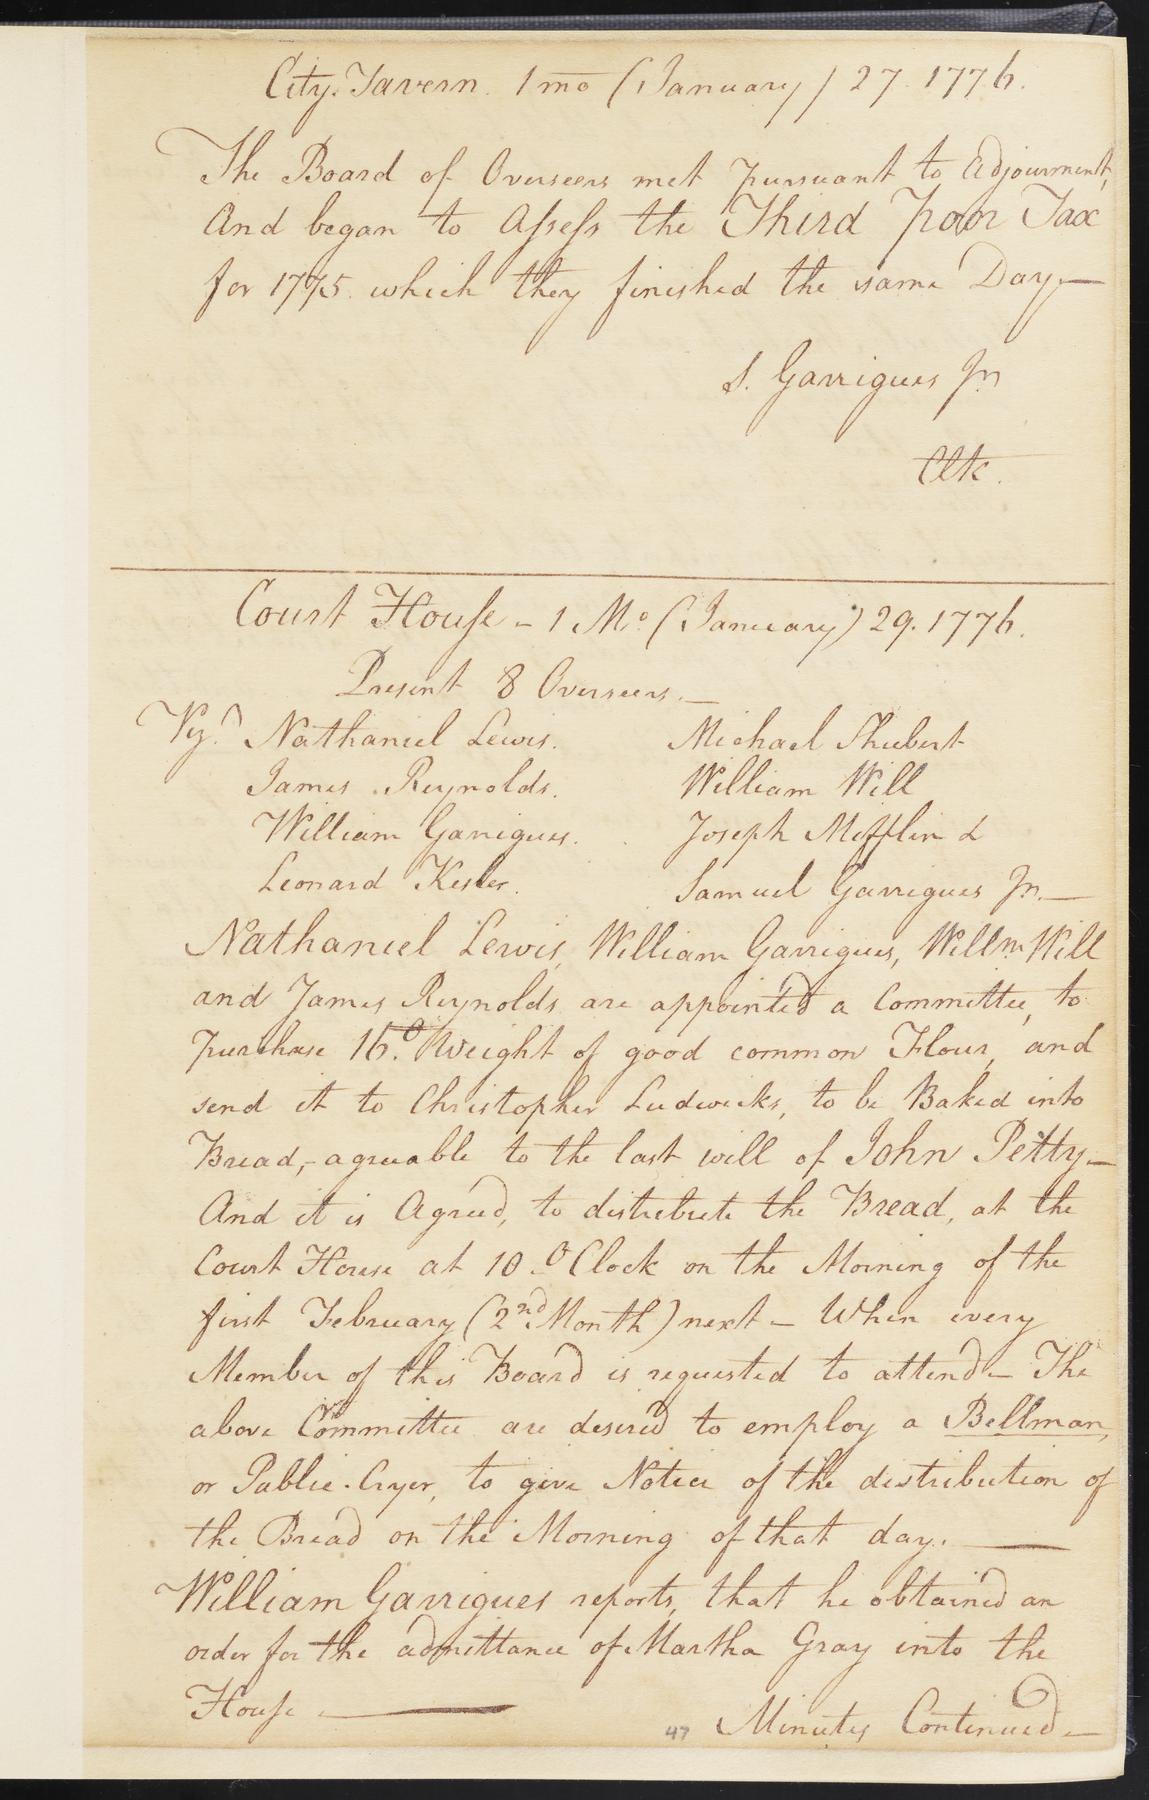 City Tavern. 1 mo (January) 27. 1776.
The Board of Overseers met pursuant to Adjournment,
And began to Assess the Third Poor Tax
for 1775. which they finished the same Day,—
S. Garrigues Jr.
Clk.
Court House – 1 Mo. (January) 29. 1776.
Present 8 Overseers.—
Viz.t Nathaniel Lewis. Michael Shubert
James Reynolds. William Will
William Garrigues. Joseph Mifflin &
Leonard Kesler. Samuel Garrigues Jr.—
Nathaniel Lewis, William Garrigues, Willm. Will
and James Reynolds are appointed a Committee, to
purchase Weight of good common Flour, and
send it to Christopher Ludwicks, to be Baked into
Bread,– agreable to the last will of John Petty—
And it is Agreed, to distribute the Bread, at the
Court House at 10 O'Clock on the Morning of the
first February (2nd Month) next – When every
Member of this Board is requested to attend – The
above Committee are desired to employ a Bellman,
or Public-Cryer, to give Notice of the distribution of
the Bread on the Morning of that day. —
William Garrigues reports, that he obtained an
order for the admittance of Martha Gray into the
House —
47 Minutes Continued —